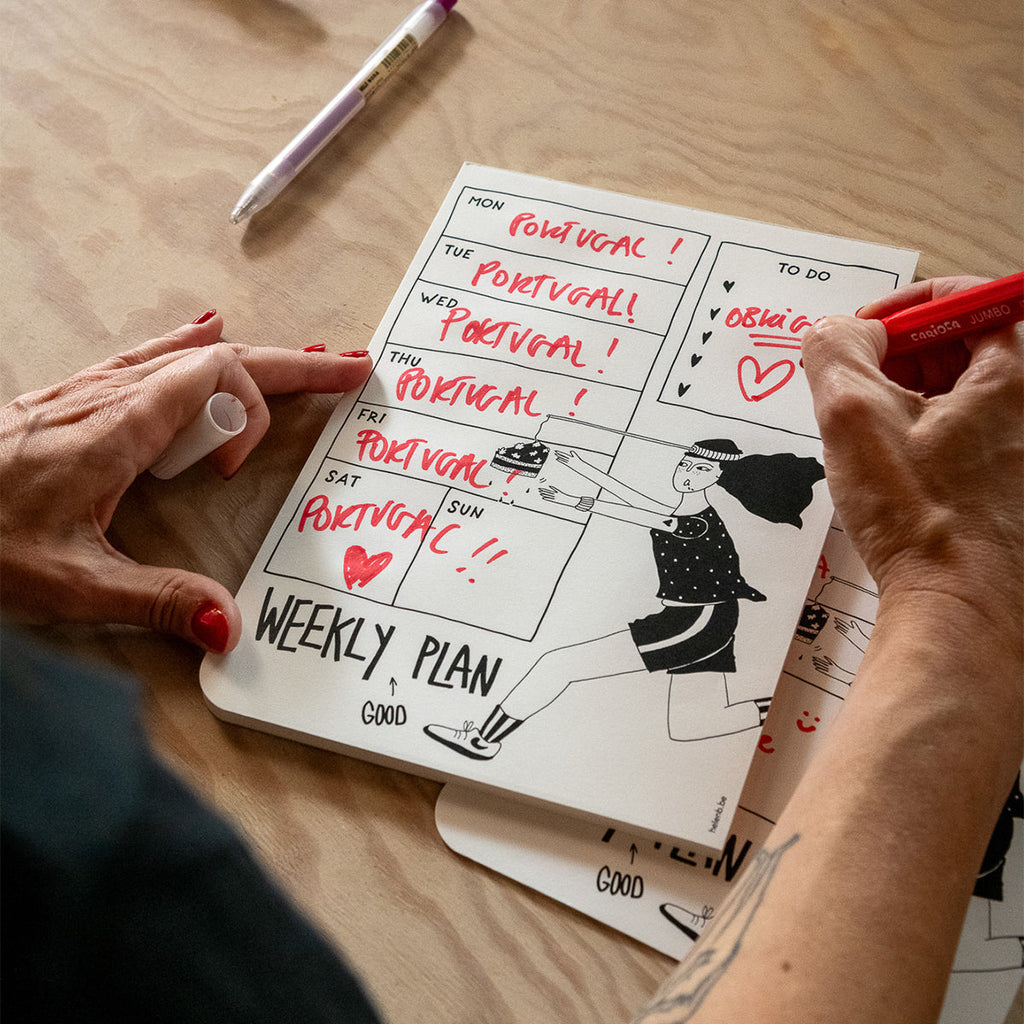 MON
PORTUGAL !
TUE
PORTUGAL!
WED
PORTUGAL !
THU
PORTUGAL !
FRI
PORTUGAL !
SAT
SUN
PORTUGAL !!
TO DO
WEEKLY PLAN
GOOD
helenb.be
GOOD
CARIOCA JUMBO